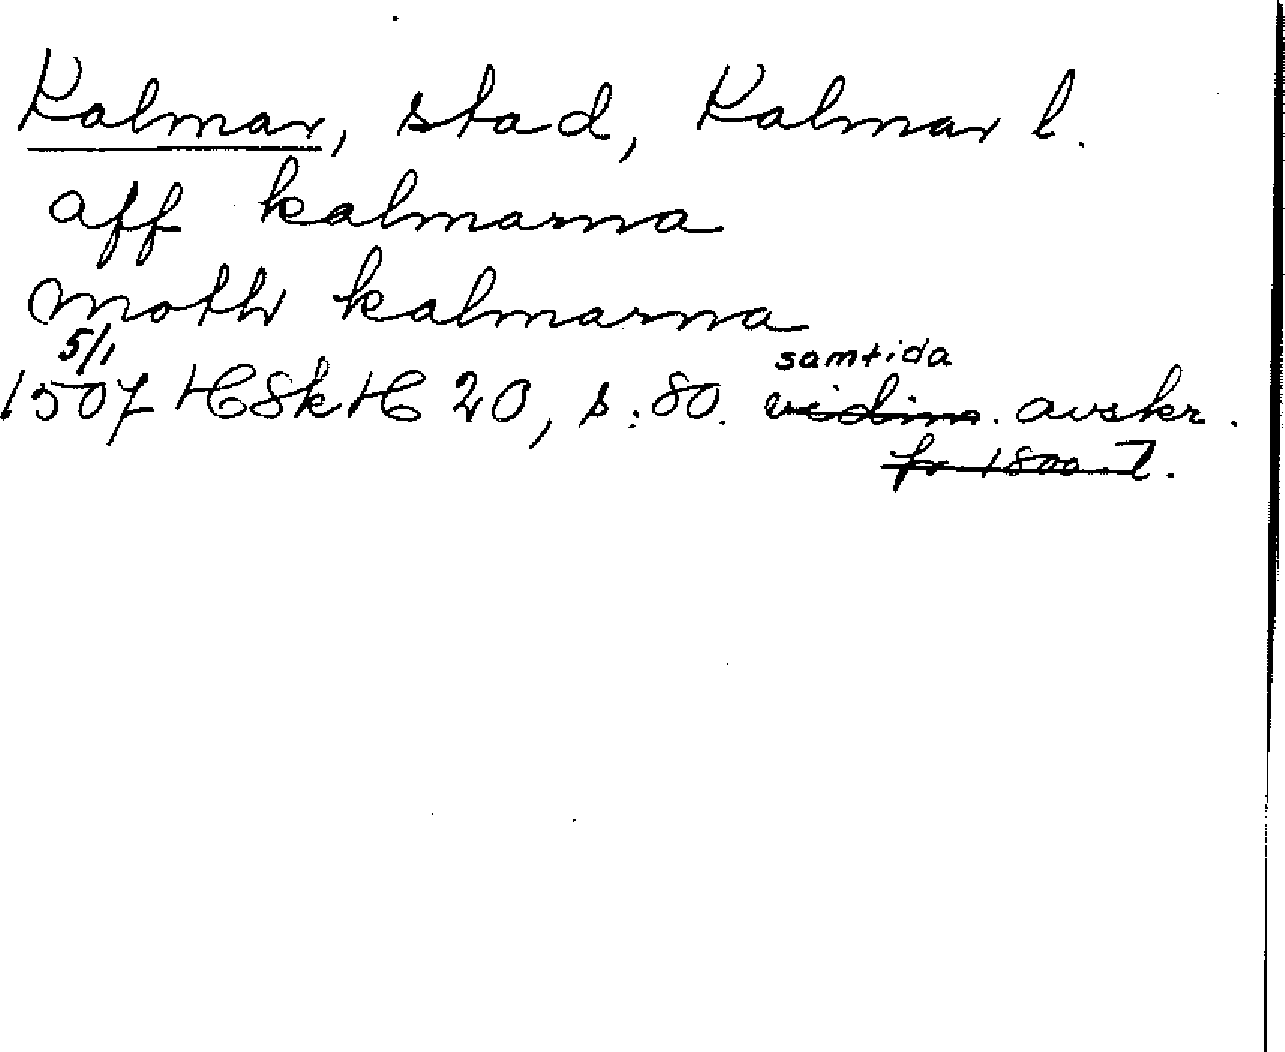 Kalmar, stad, Kalmar l.
aff kalmarna
moth kalmarna
5/1 samtida
1507 HSkH 20, s. 80. vidim. avskr.
fr 1800-t.